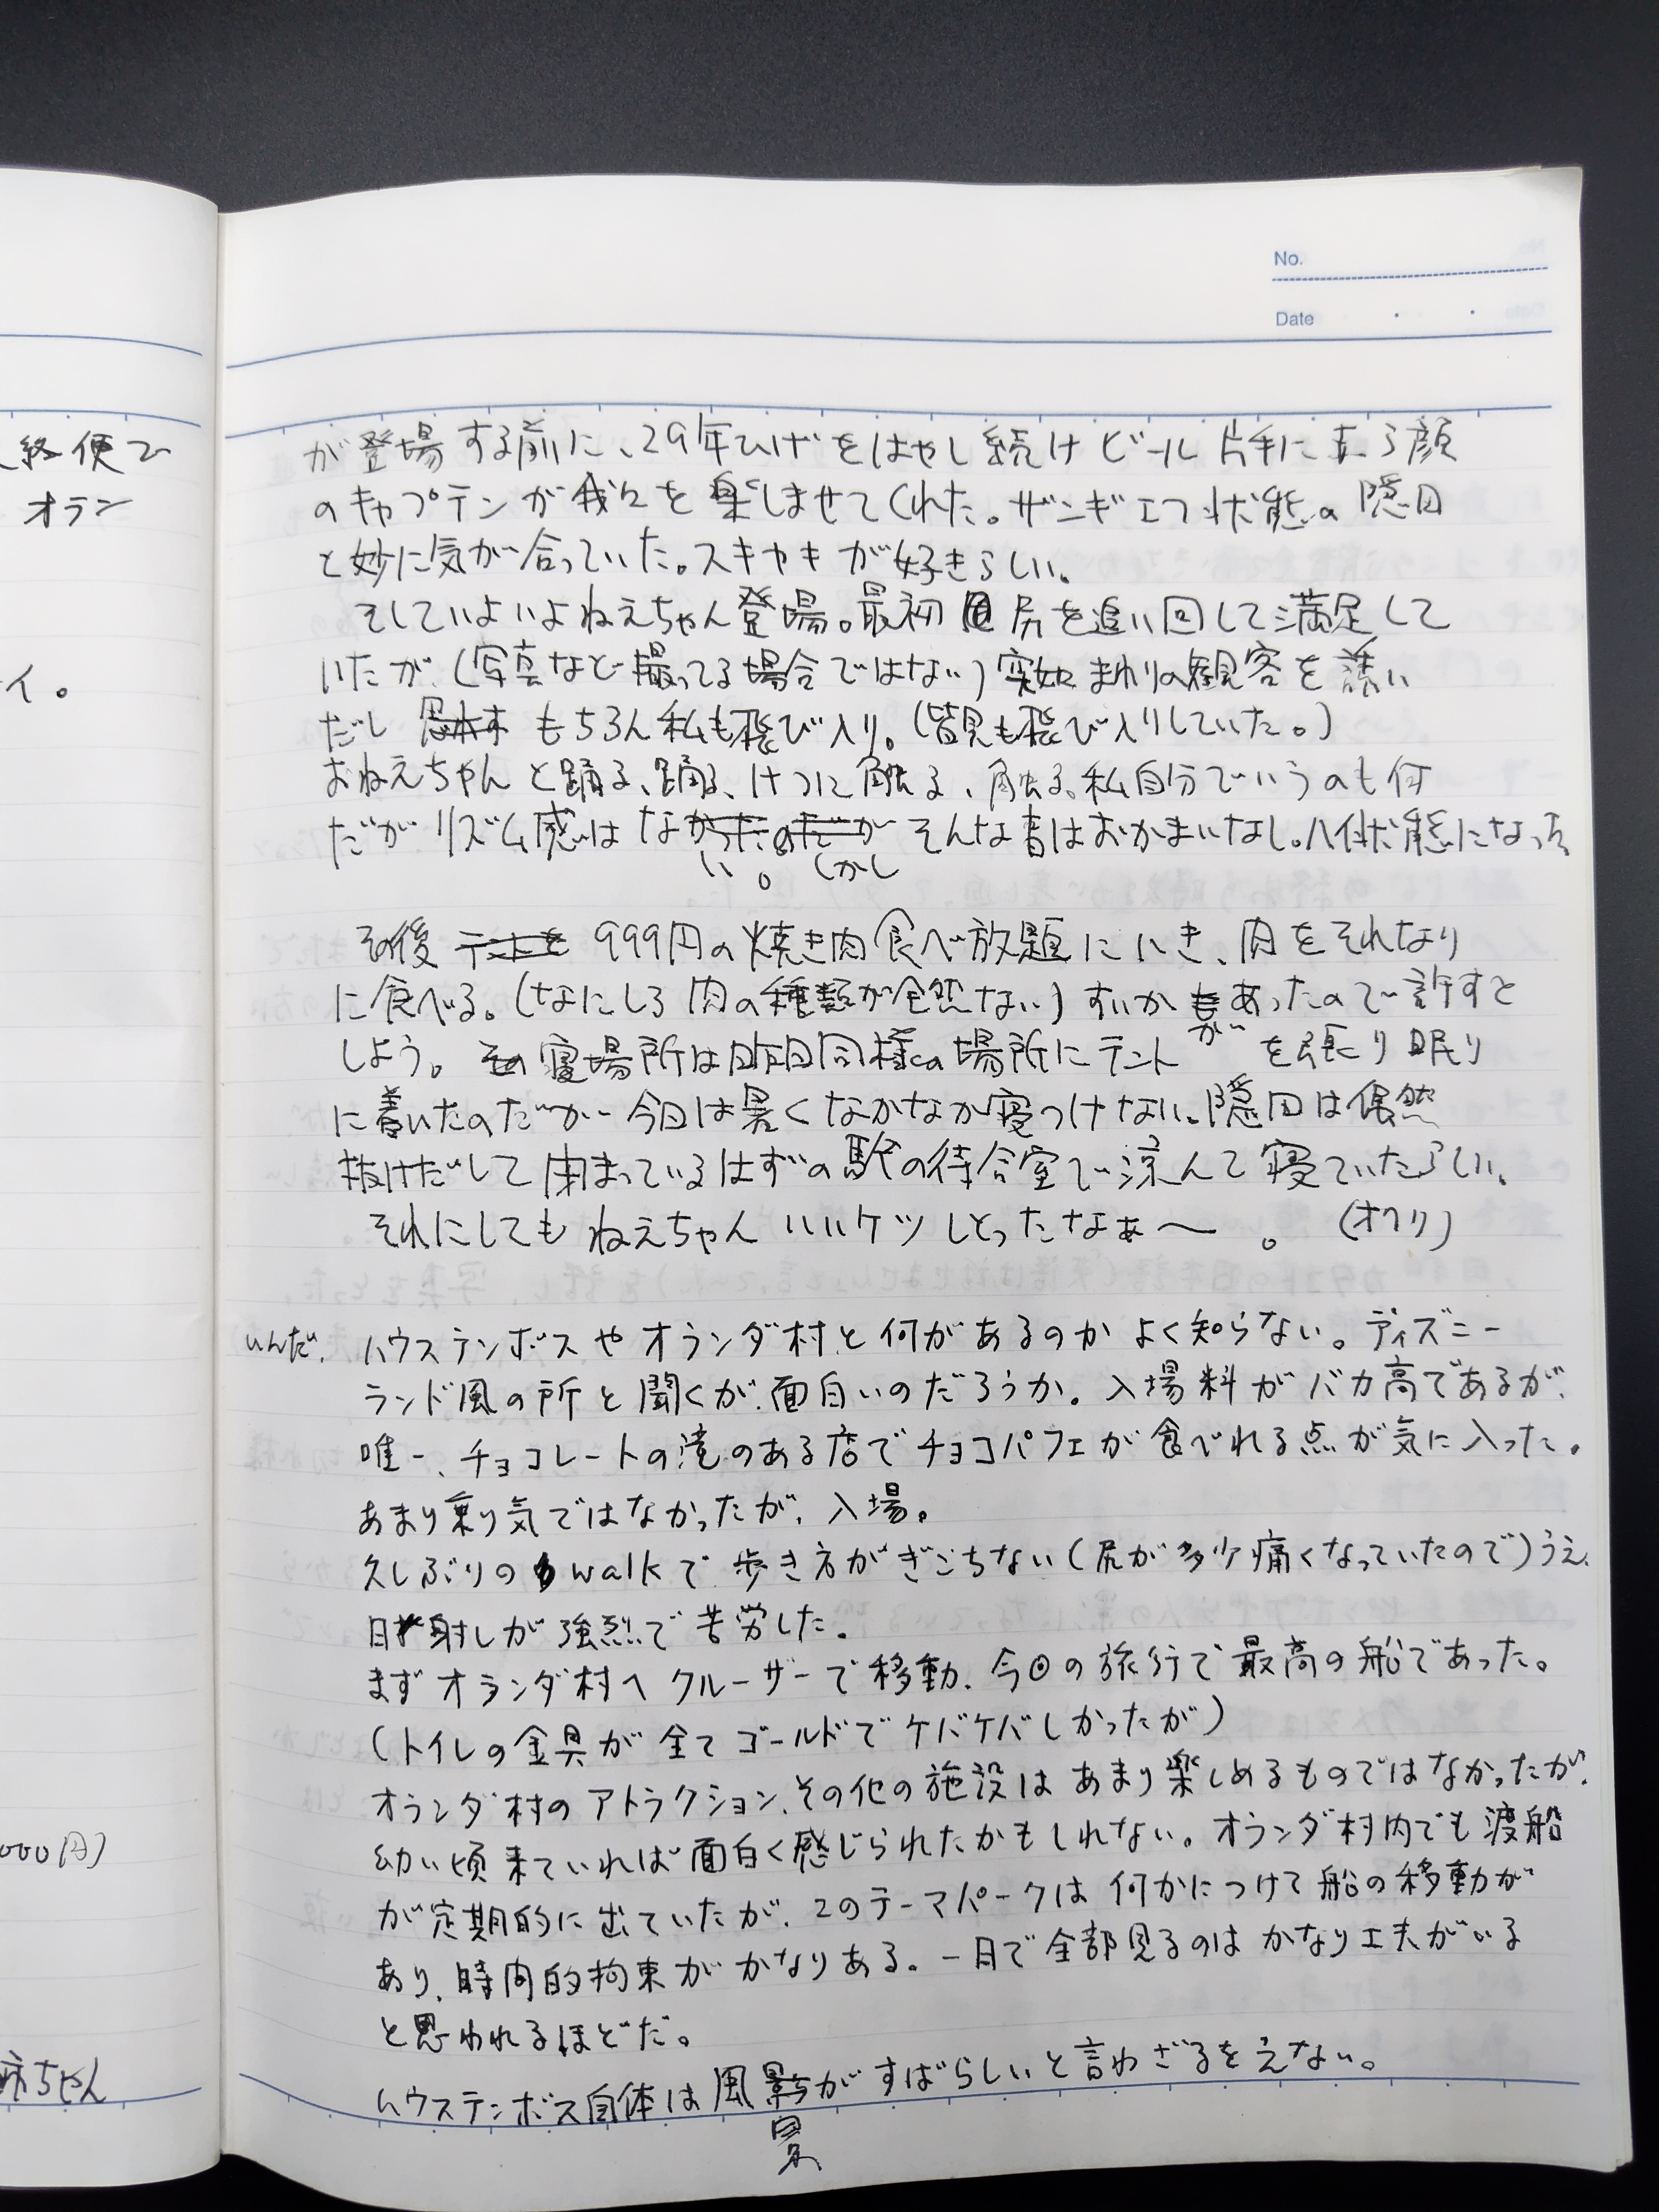 終便で
オラン
イ。
000円)
ちゃん
No.
Date
が登場する前に、29年ひげをはやし続けビール片手に 顔
のキャプテンが我々を楽しませてくれた。ザンギエフ状態の隠田
と妙に気が合っていた。スキヤキが好きらしい。
そしていよいよねえちゃん登場。最初 尻を追い回して満足して
いたが(写真など撮ってる場合ではない)突如まわりの観客を誘い
だし もちろん私も飛び入り。(皆見も飛び入りしていた。)
おねえちゃんと踊る、踊る、けつに触る、触る。私自分でいうのも何
だがリズム感はなかったのだが そんな事はおかまいなし。ハイ状態になった
い。しかし
その後 テントを 999円の焼き肉食べ放題にいき、肉をそれなり
に食べる。(なにしろ肉の種類が全然ない)すいかもあったので許すと
が
しよう。その寝場所は昨日同様の場所にテントを張り眠り
に着いたのだが今日は暑くなかなか寝つけない。隠田は偶然
抜けだして閉まっているはずの駅の待合室で涼んで寝ていたらしい。
それにしてもねえちゃんいいケツしとったなぁ〜。(オワリ)
いんだ。
ハウステンボスやオランダ村と何があるのかよく知らない。ディズニー
ランド風の所と聞くが、面白いのだろうか。入場料がバカ高であるが、
唯一、チョコレートの滝のある店でチョコパフェが食べれる点が気に入った。
あまり乗り気ではなかったが、入場。
久しぶりの walkで歩き方がぎこちない(尻が多少痛くなっていたので)うえ、
日射しが強烈で苦労した。
まずオランダ村へクルーザーで移動、今回の旅行で最高の船であった。
(トイレの金具が全てゴールドでケバケバしかったが)
オランダ村のアトラクション、その他の施設はあまり楽しめるものではなかったが、
幼い頃来ていれば面白く感じられたかもしれない。オランダ村内でも渡船
が定期的に出ていたが、このテーマパークは何かにつけて船の移動が
あり、時間的拘束がかなりある。一日で全部見るのはかなり工夫がいる
と思われるほどだ。
ハウステンボス自体は風影がすばらしいと言わざるをえない。
景